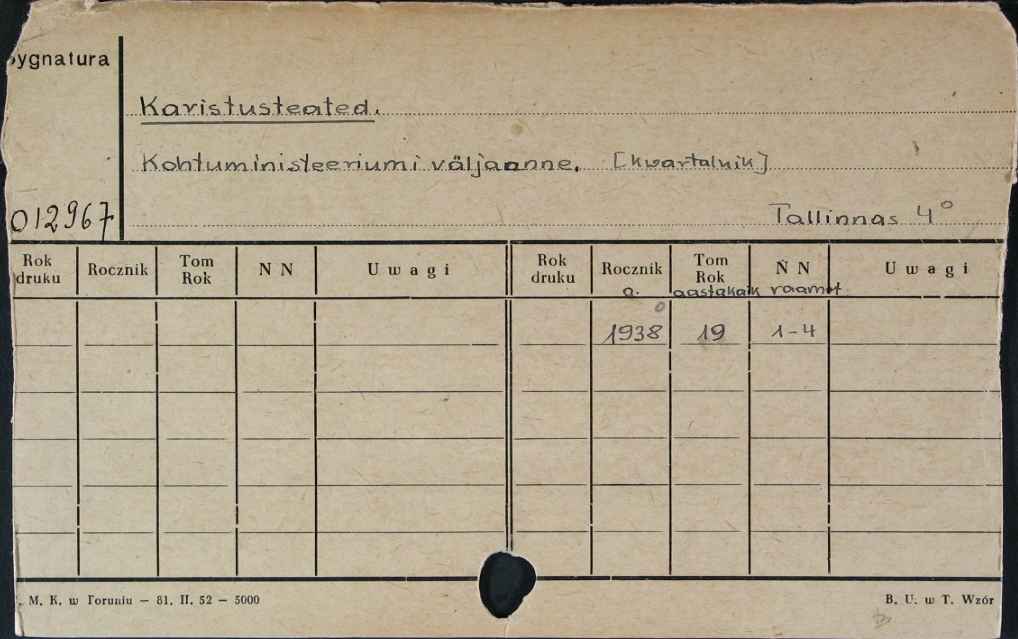 Sygnatura
Karistusteated.
Kohtuministeeriumi väljaanne. [kwartalnik]
012967
Tallinnas 4°
Rok druku Rocznik Tom Rok N N Uwagi Rok druku Rocznik Tom Rok N N Uwagi
a. aastakäik raamat
1938 19 1-4
M. K. w Toruniu — 81. II. 52 — 5000
B. U. w T. Wzór